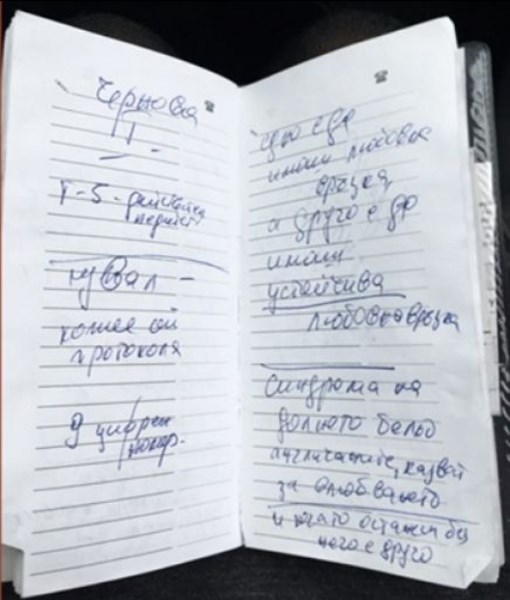 Чернова
Т-5-
нувал -
протокола
9 цифрен
номер.
имаш любовна
връзка
а друго е да
имаш
устойчива
любовна връзка
синдрома на
долното бельо
англичаните, казват
за влюбването
и когато останеш без
него е друго